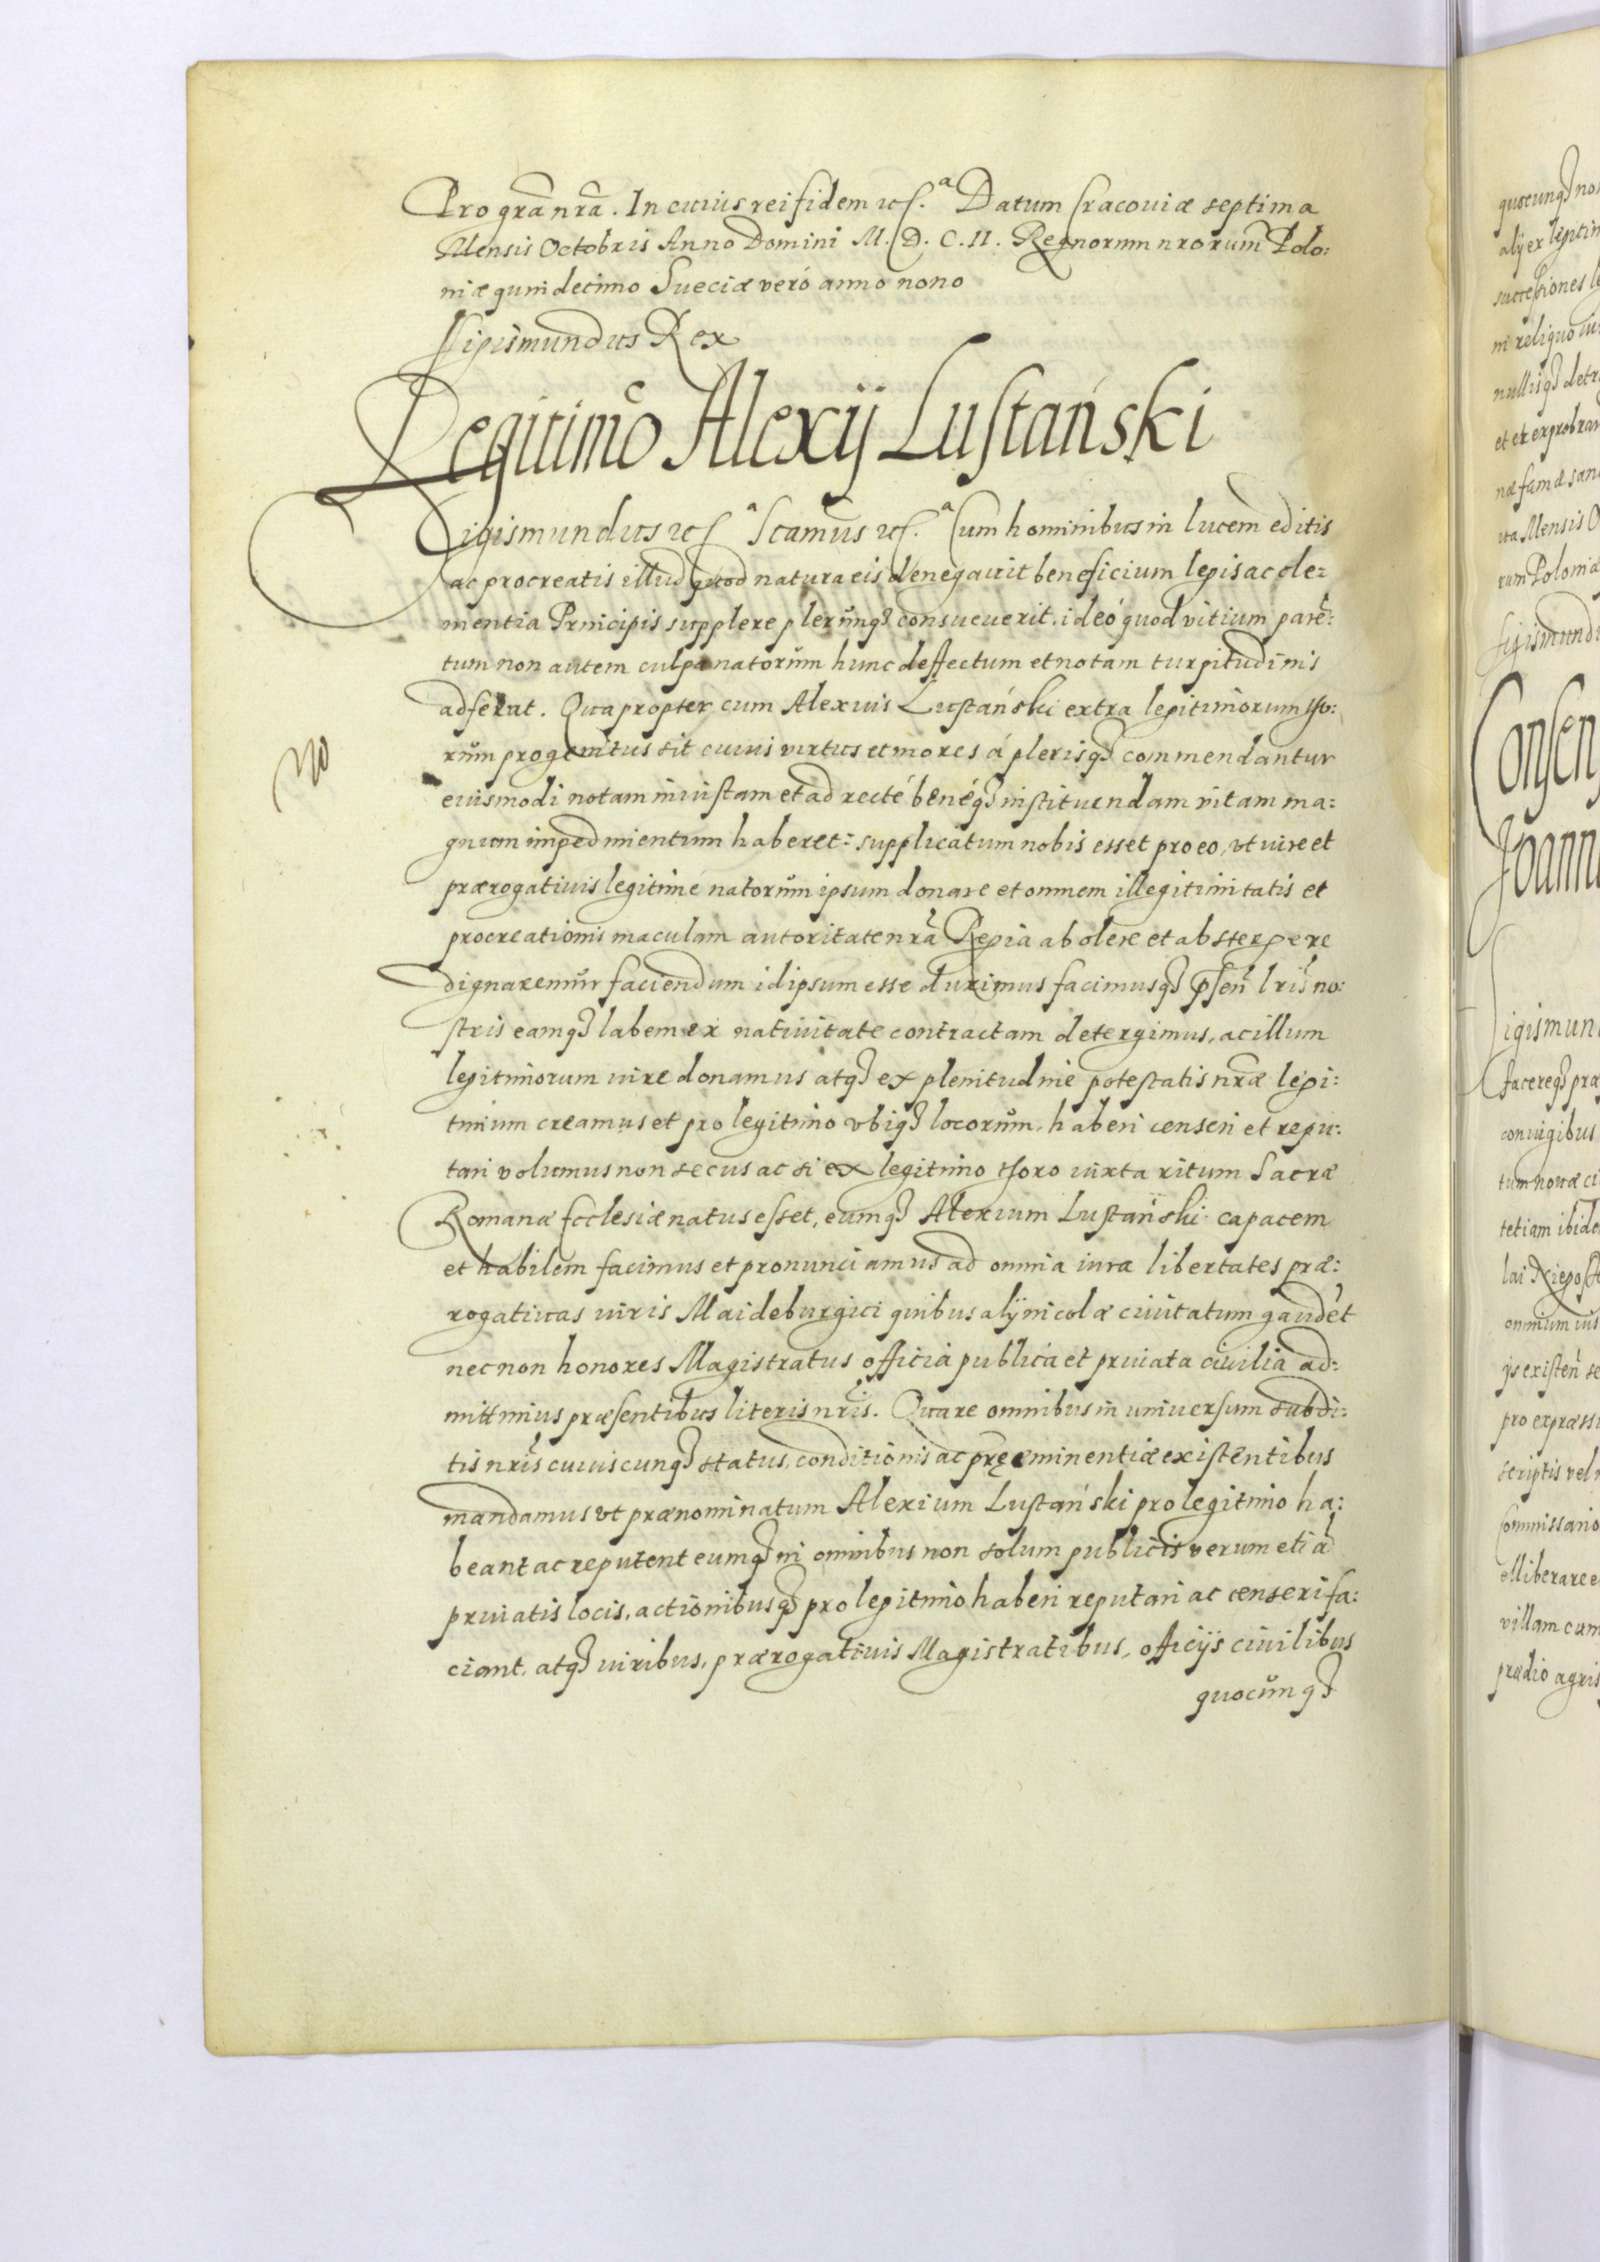 Pro gra̅ nra̅. In cuius rei fidem etc.ª Datum Cracouiæ septima
Mensis Octobris Anno Domini M. D. C. II. Regnorum nrorum̅ Polo:
niæ quindecimo Sueciæ veró anno nono
Sigismundus Rex
Legitimo Alexij Lustański
Sigismundus etc.ª Scamus etc.ª Cum hominibus in lucem editis
ac procreatis illud quod natura eis denegauit beneficium legis ac cle:
mentia Principis supplere plerumq3 consueuerit, ideó quod vitium pare̅:
tum non autem culpa natorum hunc deffectum et notam turpitudinis
adferat. Quapropter cum Alexius Lustański extra legitimorum tho:
rum progenitus sit cuius virtus et mores á plerisq3 commendantur
eiusmodi notam iniustam et ad recté benéq3 instituendam vitam ma:
gnum impedimentum haberet: supplicatum nobis esset pro eo, vt iure et
prærogatiuis legitimé natorum ipsum donare et omnem illegitimitatis et
procreationis maculam autoritate nra̅ Regia abolere et abstergere
dignaremur faciendum id ipsum esse duximus facimusq3 pr̅sen̅ lris̅ no:
stris eamq3 labem ex natiuitate contractam detergimus, ac illum
legitimorum iure donamus atq3 ex plenitudine potestatis nræ̅ legi:
timum creamus et pro legitimo vbiq3 locorum, haberi censeri et repu:
tari volumus non secus ac si ex legitimo thoro iuxta ritum Sacræ
Romanæ Ecclesiæ natus esset, eumq3 Alexium Lustański capacem
et habilem facimus et pronunciamus ad omnia iura libertates præ:
rogatiuas iuris Maideburgici quibus alij incolæ ciuitatum gaude̅t
nec non honores Magistratus officia publica et priuata ciuilia ad:
mittimus præsentibus literis nris̅. Quare omnibus in uniuersum subdi:
tis nris̅ cuiuscunq3 status, conditionis ac præeminentiæ existentibus
mandamus vt prænominatum Alexium Lustański pro legitimo ha:
beant ac reputent eumq3 in omnibus non solum publicis verum etia̅
priuatis locis, actionibusq3 pro legitimo haberi reputari ac censeri fa:
ciant, atq3 iuribus, prærogatiuis Magistratibus, officijs ciuilibus
quocunq3